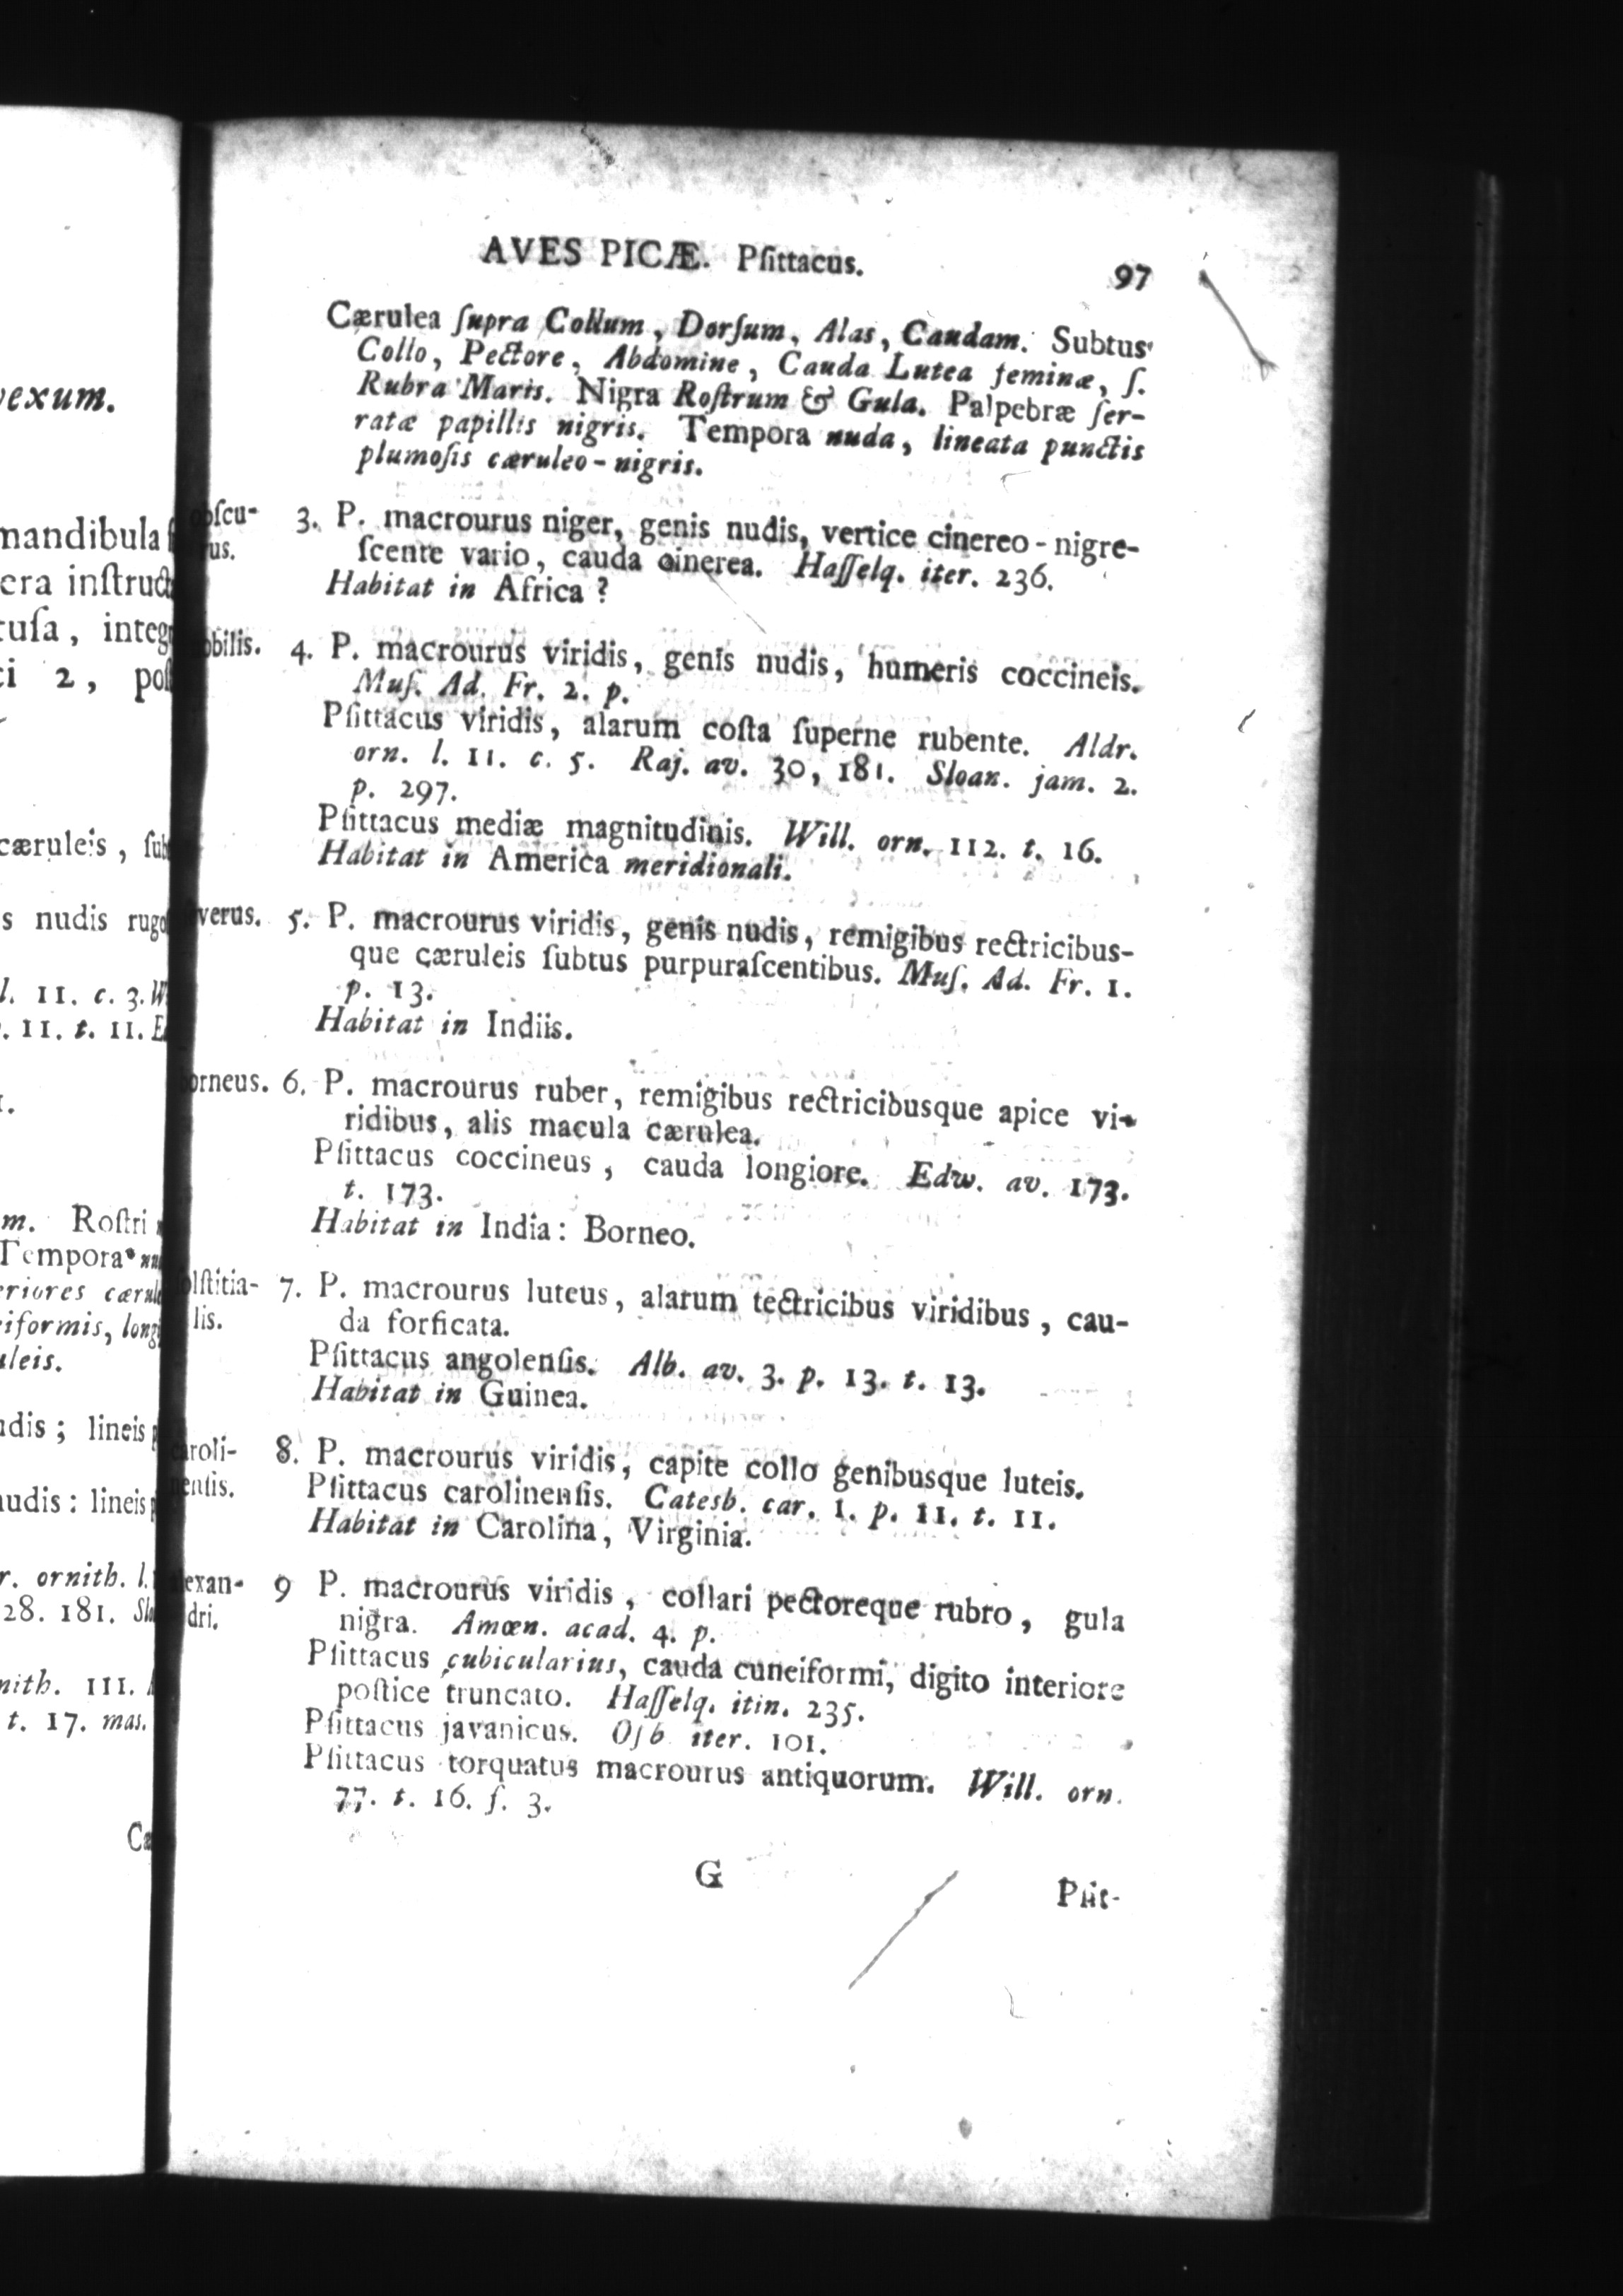 vexum.
mandibula
era instruct
tusa, integ
ci 2, pos
cæruleis, sub
s nudis rugo
l. 11. c. 3. W
. 11. t. 11. E
1.
m. Rostri
Tempora nu
eriores cærul
eiformis, longi
uleis.
udis; lineis p
nudis: lineis p
r. ornith. l.
28. 181. Slo
nith. 111.
t. 17. mas.
Ca
AVES PICÆ. Psittacus. 97
Cærulea ſupra Collum, Dorſum, Alas, Caudam. Subtus
Collo, Pectore, Abdomine, Cauda Lutea feminæ, ſ.
Rubra Maris. Nigra Roſtrum & Gula. Palpebræ ſer-
ratæ papillis nigris. Tempora nuda, lineata punctis
plumoſis cæruleo-nigris.
obſcu- 3. P. macrourus niger, genis nudis, vertice cinereo-nigre-
rus. ſcente vario, cauda cinerea. Haſſelq. iter. 236.
Habitat in Africa?
obilis. 4. P. macrourus viridis, genis nudis, humeris coccineis.
Muſ. Ad. Fr. 2. p.
Pſittacus viridis, alarum coſta ſuperne rubente. Aldr.
orn. l. 11. c. 5. Raj. av. 30, 181. Sloan. jam. 2.
p. 297.
Pſittacus mediæ magnitudinis. Will. orn. 112. t. 16.
Habitat in America meridionali.
verus. 5. P. macrourus viridis, genis nudis, remigibus rectricibus-
que cæruleis ſubtus purpuraſcentibus. Muſ. Ad. Fr. 1.
p. 13.
Habitat in Indiis.
orneus. 6. P. macrourus ruber, remigibus rectricibusque apice vi-
ridibus, alis macula cærulea.
Pſittacus coccineus, cauda longiore. Edw. av. 173.
t. 173.
Habitat in India: Borneo.
olſtitia- 7. P. macrourus luteus, alarum tectricibus viridibus, cau-
lis. da forficata.
Pſittacus angolenſis. Alb. av. 3. p. 13. t. 13.
Habitat in Guinea.
caroli- 8. P. macrourus viridis, capite collo genibusque luteis.
nenſis. Pſittacus carolinenſis. Catesb. car. 1. p. 11. t. 11.
Habitat in Carolina, Virginia.
lexan- 9 P. macrourus viridis, collari pectoreque rubro, gula
dri. nigra. Amœn. acad. 4. p.
Pſittacus cubicularius, cauda cuneiformi, digito interiore
poſtice truncato. Haſſelq. itin. 235.
Pſittacus javanicus. Oſb iter. 101.
Pſittacus torquatus macrourus antiquorum. Will. orn.
77. t. 16. f. 3.
G Pſit-